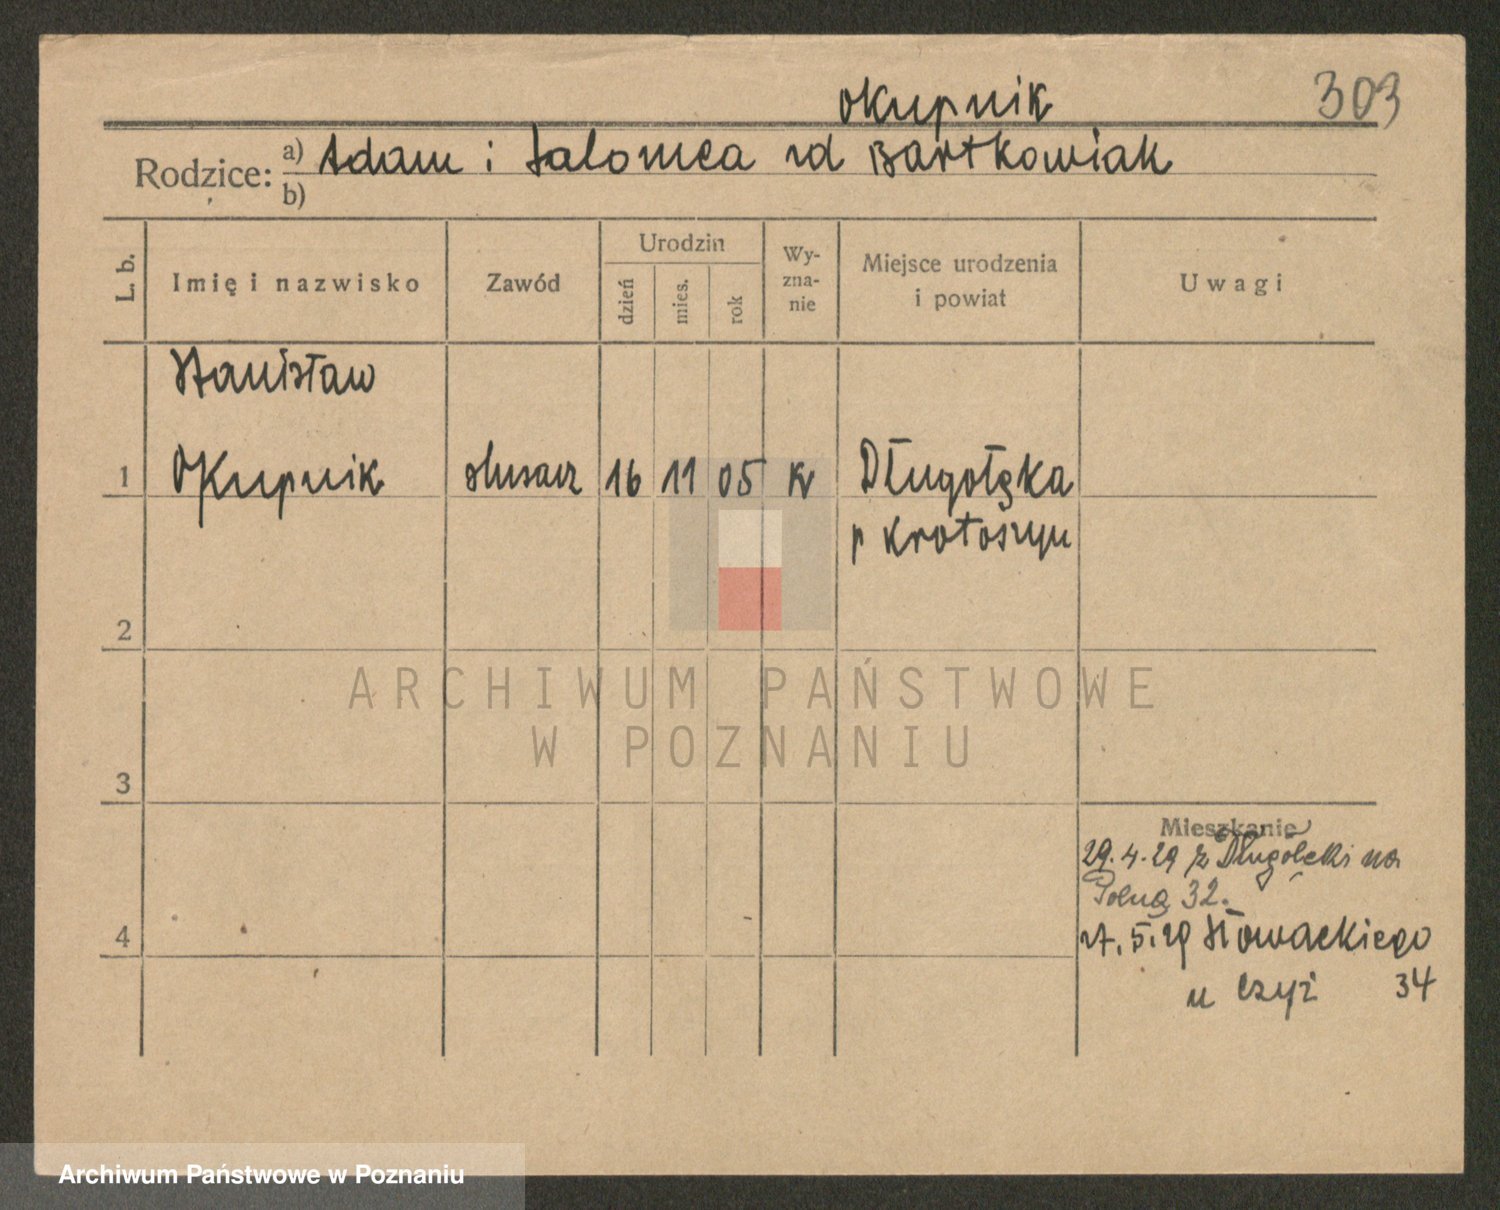 Okupnik 303
Rodzice: a) Adam i Salomea rd Bartkowiak
b)
L. b. Imię i nazwisko Zawód Urodzin dzień mies. rok Wy-zna-nie Miejsce urodzenia i powiat Uwagi
Stanisław
1 Okupnik slusarz 16 11 05 k Długołęka
p Krotoszyn
2
ARCHIWUM PAŃSTWOWE
W POZNANIU
3
Mieszkanie
29.4.29 z Długołęki na
Polną 32.
4 27.5.29 Słowackiego
u Czyż 34
Archiwum Państwowe w Poznaniu